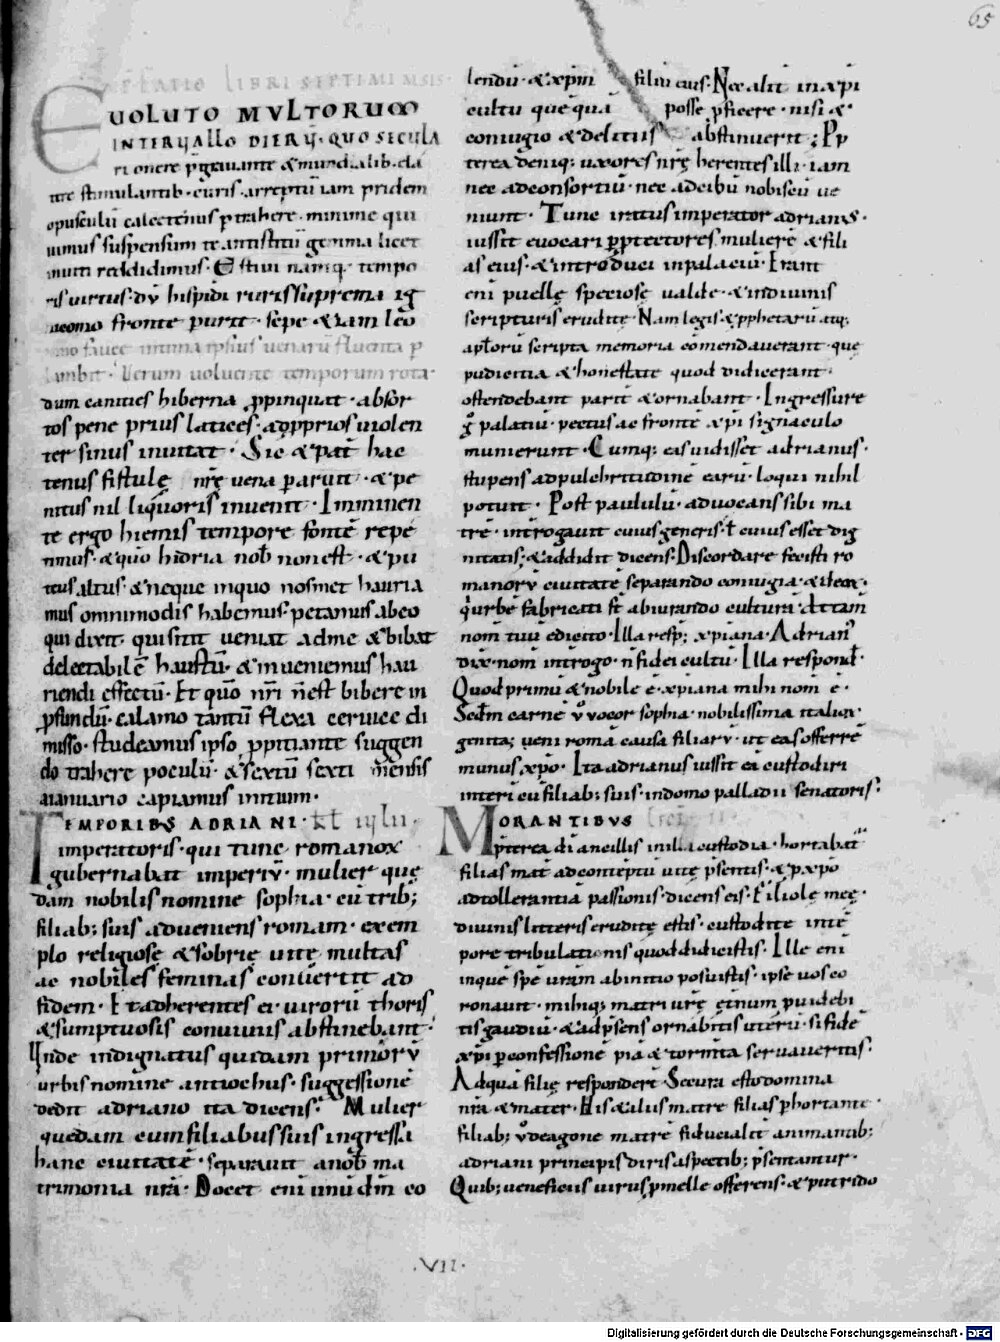 65
LIBRI SEPTIMI MSIS
EUOLUTO MVLTORUM
INTERUALLO DIERU· QUO SECULA
ri onere pgrauante & mundialib· cla
opusculū calcetenus ptrahere· minime qui
uimus suspensum te antistitū gemma licet
inuiti reddidimus· Estiui namq· tempo
ris uirtus· dū hispidi ruris suprema ig
neomo fronte purit· sepe & iam leo
nino fauce intima ipsius uenarū fluenta p
lambit· Uerum uoluente temporum rota
dum canities hiberna ppinquat· absor
tos pene prius latices· adpprios uiolen
ter sinus inuitat· Sic & pat hac
tenus fistulę nrę uena paruit· & pe
nitus nil liquoris inuenit· Imminen
te ergo hiemis tempore fontē repe
timus· & quo hidria nob non est· & pu
teus altus· & neque in quo nosmet hauria
mus omnimodis habemus· petamus ab eo
qui dixit· qui sitit ueniat ad me & bibat
delectabilē haustū· & inueniemus hau
riendi effectū· Et quō nri n̄ est bibere in
pfundū· calamo tantū flexa ceruice di
misso· studeamus ipso ppitiante suggen
do trahere poculū· & sextū sexti mensis
a ianuario capiamus initium·
TEMPORIBVS ADRIANI·
imperatoris· qui tunc romanox
gubernabat imperiū· mulier quę
dam nobilis nomine sophia· cū trib;
filiab; suis adueniens romam· exem
plo religiosę & sobrię uitę multas
ac nobiles feminas conuertit ad
fidem· Et adherentes ei· uirorū thoris
& sumptuosis conuiuiis abstinebant·
Unde indignatus quidam primorū
urbis nomine antiochus· suggessionē
dedit adriano ita dicens· Mulier
quedam cum filiabus suis ingressa
hanc ciuitatē· separauit a nob ma
trimonia nrā· Docet eni unū dm̄ co
lendū· & xpm filiū eius· Nec alit in xpi
cultu quequā posse pficere· nisi &
coniugio & delitiis abstinuerit; Pp
terea deniq; uxores nrę herentes illi· iam
nec ad consortiū· nec ad cibū nobiscū ue
niunt· Tunc iratus imperator adrianus·
iussit euocari p ptectores mulierē & fili
as eius· & introduci in palaciū· Erant
eni puellę speciosę ualde· & in diuinis
scripturis eruditę· Nam legis & pphetarū atq;
aptorū scripta memorię comendauerant· quę
pudicitia & honestate quod didicerant·
ostendebant parit & ornabant· Ingressure
g palatiū· pectus ac frontē xpi signaculo
munierunt· Cumq; eas uidisset adrianus·
stupens ad pulchritudinē earū· loqui nihil
potuit· Post paululū· aduocans sibi ma
trē· introgauit cuius generis· t cuius esset dig
nitatis· & addidit dicens· Discordare fecisti ro
manorū ciuitatē separando coniugia·
nom tuū edicito· Illa resp; xpiana· Adrian
dix· nom introgo· n fidei cultū· Illa respond·
Quod primū & nobile ē· xpiana mihi nom ē·
Scdm carnē ū uocor sophia· nobilissima
genita; ueni romā causa filiarū· ut eas offerrē
munus xpo· Ita adrianus iussit eā custodiri
interī cū filiab; suis· in domo palladii senatoris;
MORANTIBVS
ppterea di ancillis in illa custodia· hortabat
filias mat ad conteptū uitę psentis· & p xpo
ad tollerantiā passionis· dicens eis· Filiolę meę·
diuinis litteris eruditę estis· custodite intē
pore tribulationis quod didicistis· Ille eni
in quē spē uram ab initio posuistis· ipse uos co
ronauit· mihiq; matri urę etnum puidebi
tis gaudiū· & ad psens ornabitis uterū· si fidē
xpi p confessionē piā & tormta seruaueritis·
Ad quā filię responder· Secura esto domina
nra & mater· His & aliis matre filias phortante·
filiab; ū de agone matrē fiducialit animantib;
adriani principis diris aspectib; psentantur·
Quib; ueneficus uirus p melle offerens· & putrido
·VII·
Digitalisierung gefördert durch die Deutsche Forschungsgemeinschaft · DFG